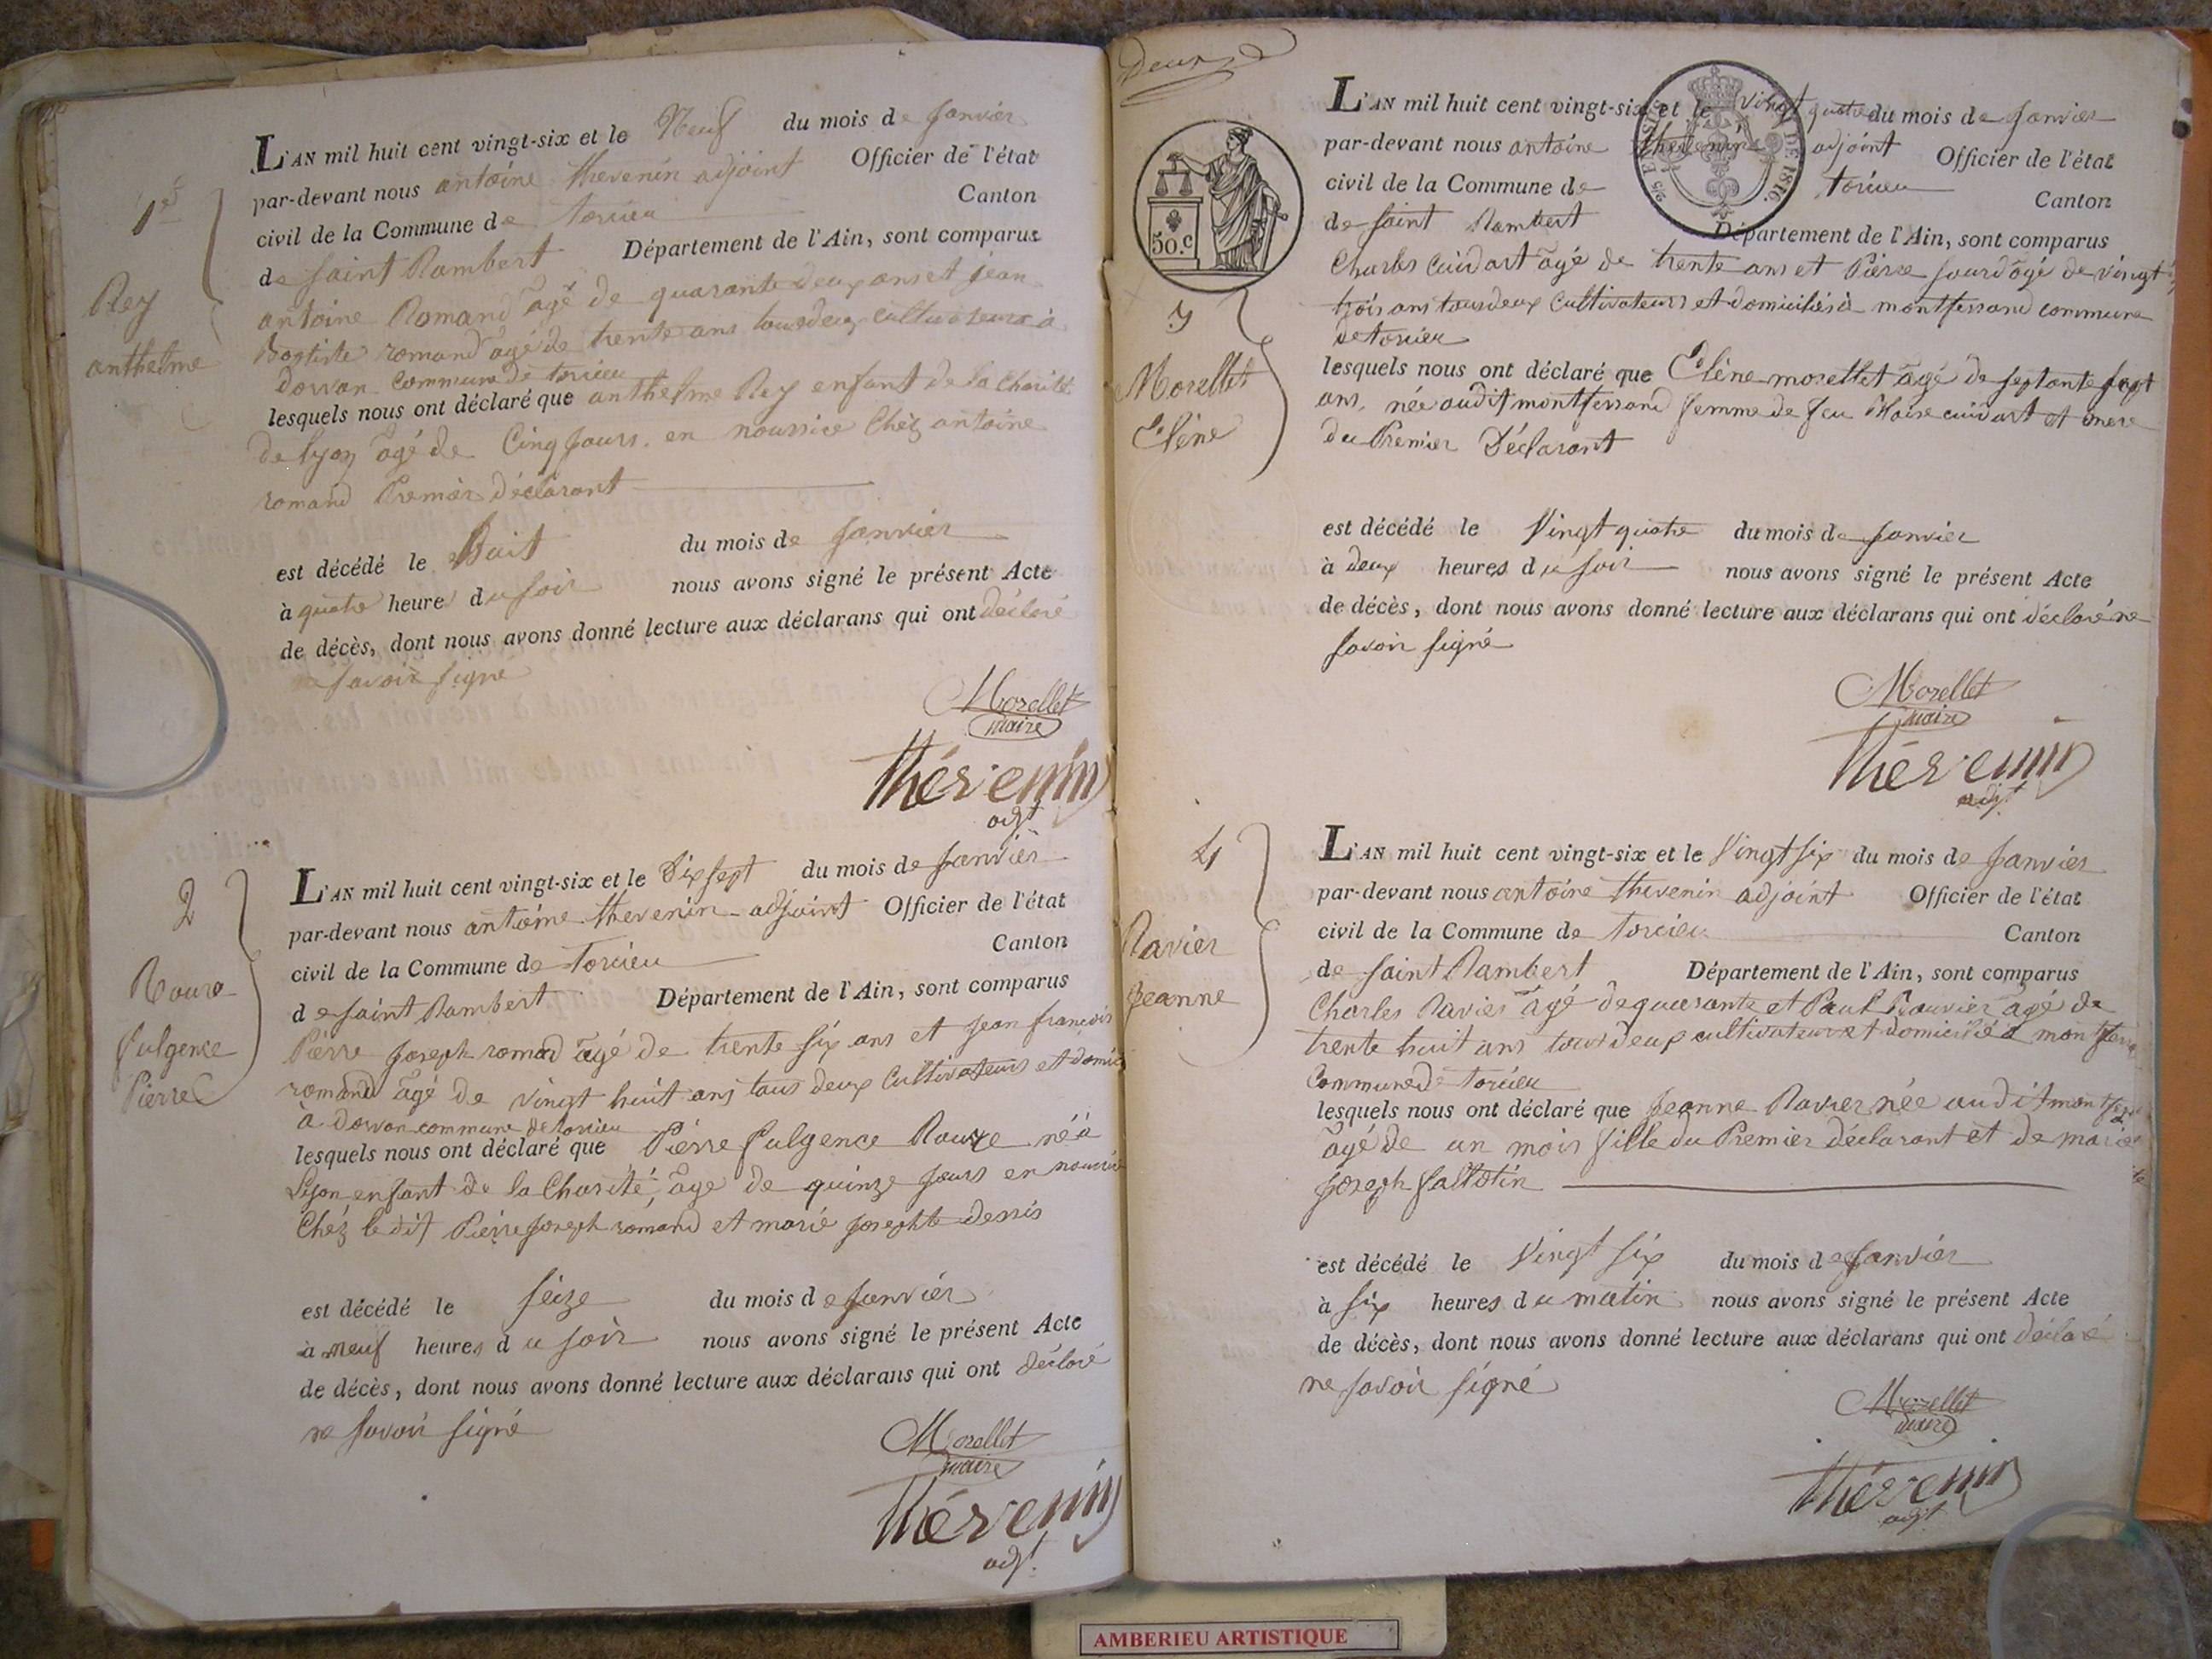 1er
Rey
anthelme
L'AN mil huit cent vingt-six et le Neuf du mois de janvier
par-devant nous antoine thevenin adjoint Officier de l'état
civil de la Commune de torcieu Canton
de saint Rambert Département de l'Ain, sont comparus
antoine Romand agé de quarante deux ans et jean
Baptiste romand agé de trente ans tous deux cultivateurs à
dorvan commune de torcieu
lesquels nous ont déclaré que anthelme Rey enfant de la charité
de lyon agé de Cinq jours en nourrice Chéz antoine
romand Premier déclarant
est décédé le Huit du mois de janvier
à quatre heures du soir nous avons signé le présent Acte
de décès, dont nous avons donné lecture aux déclarans qui ont déclaré
ne savoir signé
Morellet
maire
thévenin
adjt
2
Rouve
fulgence
Pierre
L'AN mil huit cent vingt-six et le Dix sept du mois de janvier
par-devant nous antoine thevenin adjoint Officier de l'état
civil de la Commune de torcieu Canton
de saint Rambert Département de l'Ain, sont comparus
Pierre joseph romand agé de trente six ans et jean françois
romand agé de vingt huit ans tous deux cultivateurs et domici
à dorvan commune de torcieu
lesquels nous ont déclaré que Piérre fulgence Rouve né à
Lyon enfant de la Charité, age de quinze jours en nourrice
Chéz le dit Piérre joseph romand et marie josephte
est décédé le seize du mois de janvier
à neuf heures du soir nous avons signé le présent Acte
de décès, dont nous avons donné lecture aux déclarans qui ont déclaré
ne savoir signé
Morellet
maire
thévenin
adjt
Deux
50.c
3
Morellet
Elène
L'AN mil huit cent vingt-six et le vingt quatre du mois de janvier
par-devant nous antoine thevenin adjoint Officier de l'état
civil de la Commune de torcieu Canton
de saint Rambert Département de l'Ain, sont comparus
Charles cuidart agé de trente ans et Piérre jourd agé de vingt
trois ans tous deux cultivateurs et domiciliés à montferrand commune
de torcieu
lesquels nous ont déclaré que Elène morellet agé de septante sept
ans, née audit montferrand femme de feu Blaise cuidart et mere
du Premier Déclarant
est décédé le Vingt quatre du mois de janvier
à deux heures du soir nous avons signé le présent Acte
de décès, dont nous avons donné lecture aux déclarans qui ont déclaré ne
savoir signé
Morellet
maire
thévenin
adjt
4
Ravier
jeanne
L'AN mil huit cent vingt-six et le Vingt six du mois de janvier
par-devant nous antoine thevenin adjoint Officier de l'état
civil de la Commune de torcieu Canton
de saint Rambert Département de l'Ain, sont comparus
Charles Ravier agé de quarante et Paul Bouvier agé de
trente huit ans tous deux cultivateurs et domicilié à montferra
Commune de torcieu
lesquels nous ont déclaré que jeanne Ravier née audit
agé de un mois fille du Premier déclarant et de marie
joseph
est décédé le Vingt six du mois de janvier
à six heures du matin nous avons signé le présent Acte
de décès, dont nous avons donné lecture aux déclarans qui ont déclaré
ne savoir signé
Morellet
maire
thévenin
adjt
AMBERIEU ARTISTIQUE